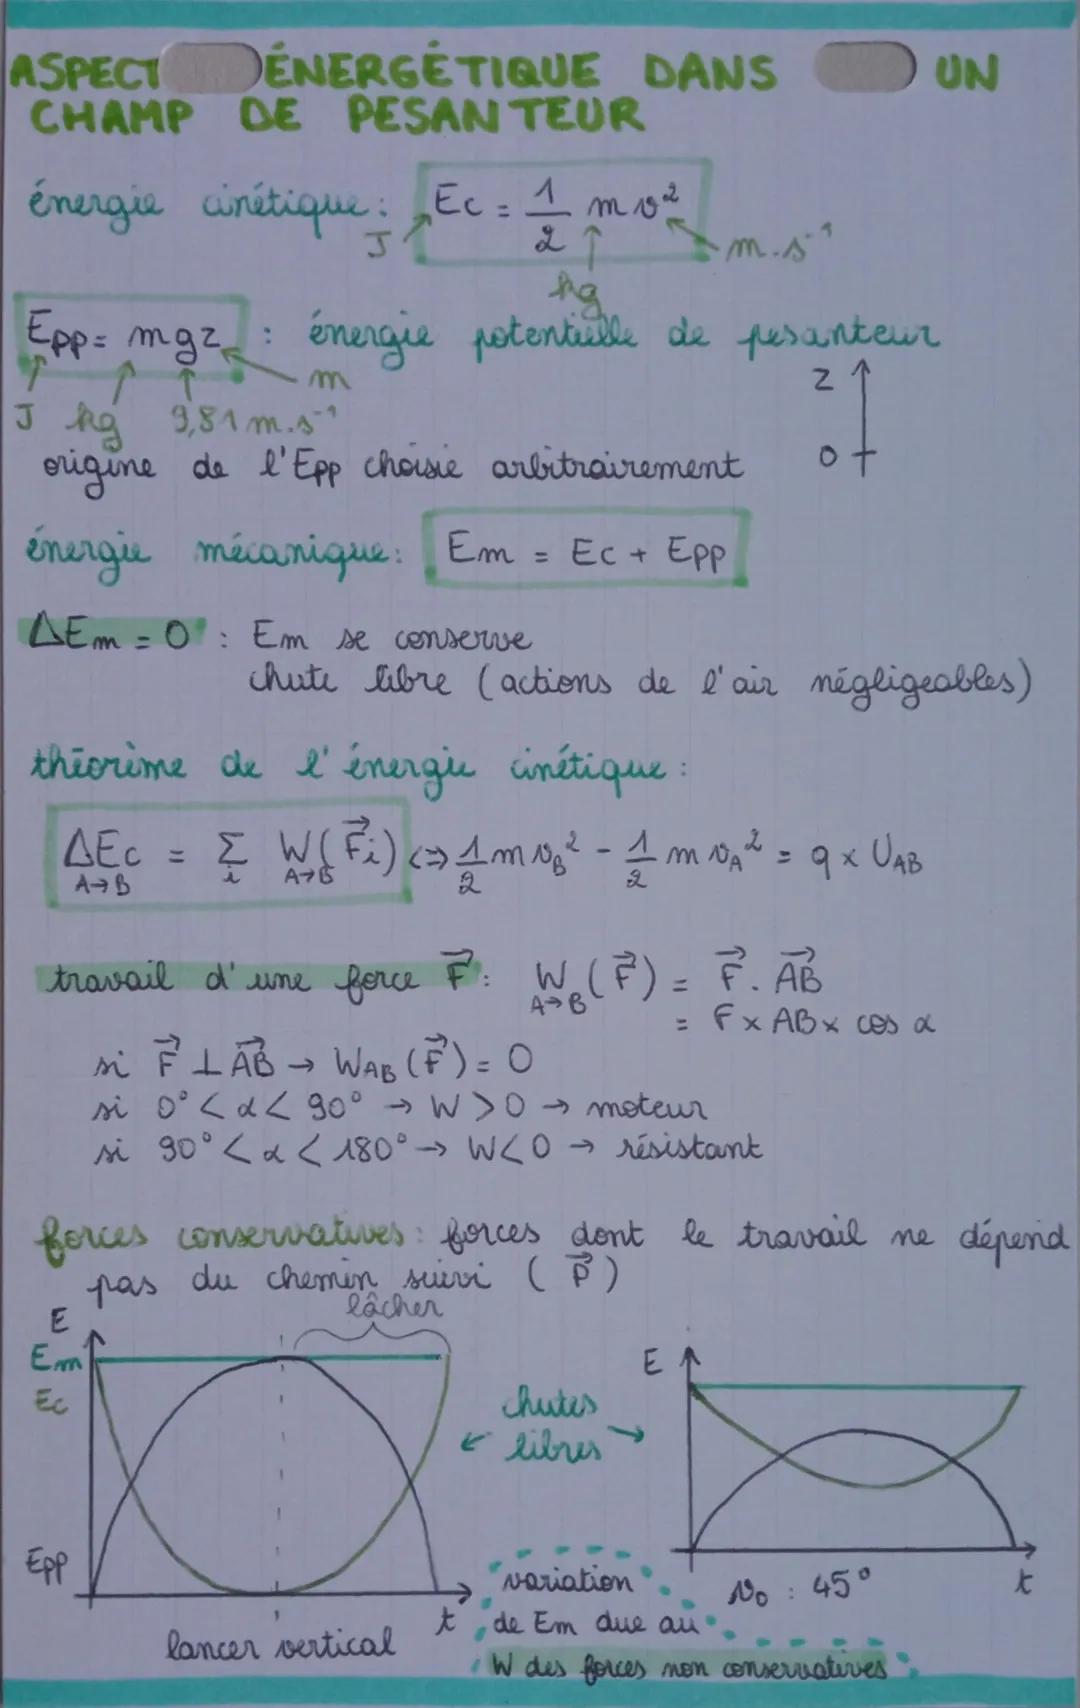 ASPECT ÉNERGÉTIQUE DANS UN
CHAMP DE PESANTEUR
énergie cinétique : Ec = 1/2 m v²
J
kg
m.s⁻¹
Epp = mgz : énergie potentielle de pesanteur
J kg 9,81 m.s⁻¹ m
z
0
origine de l'Epp choisie arbitrairement
énergie mécanique : Em = Ec + Epp
ΔEm = 0 : Em se conserve
chute libre (actions de l'air négligeables)
théorème de l'énergie cinétique :
ΔEc = Σ W(F⃗i) <=> 1/2 m vB² - 1/2 m vA² = q x UAB
A→B i A→B
travail d'une force F⃗ : W(F⃗) = F⃗ . AB⃗
A→B
= F x AB x cos α
si F⃗ ⊥ AB⃗ → WAB (F⃗) = 0
si 0° < α < 90° → W > 0 → moteur
si 90° < α < 180° → W < 0 → résistant
forces conservatives : forces dont le travail ne dépend
pas du chemin suivi ( P⃗ )
lâcher
E
Em
Ec
Epp
t
lancer vertical
← chutes
libres →
E
t
v₀ : 45°
variation
de Em due au
W des forces non conservatives